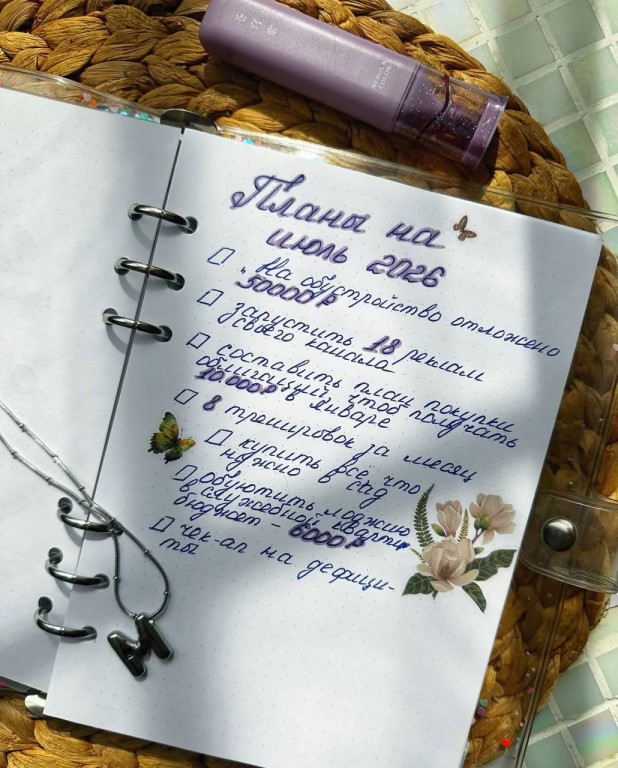 NEBULA
COLOR
Планы на
июль 2026
На обустройство отложено
50000₽
запустить 18 реклам
своего канала
составить план покупки
облигаций, чтоб получать
10.000₽ в январе
8 тренировок за месяц
купить всё что
нужно в сад
обуютить лоджию
в служебной кварти
бюджет - 6000₽
чек-ап на дефици-
ты